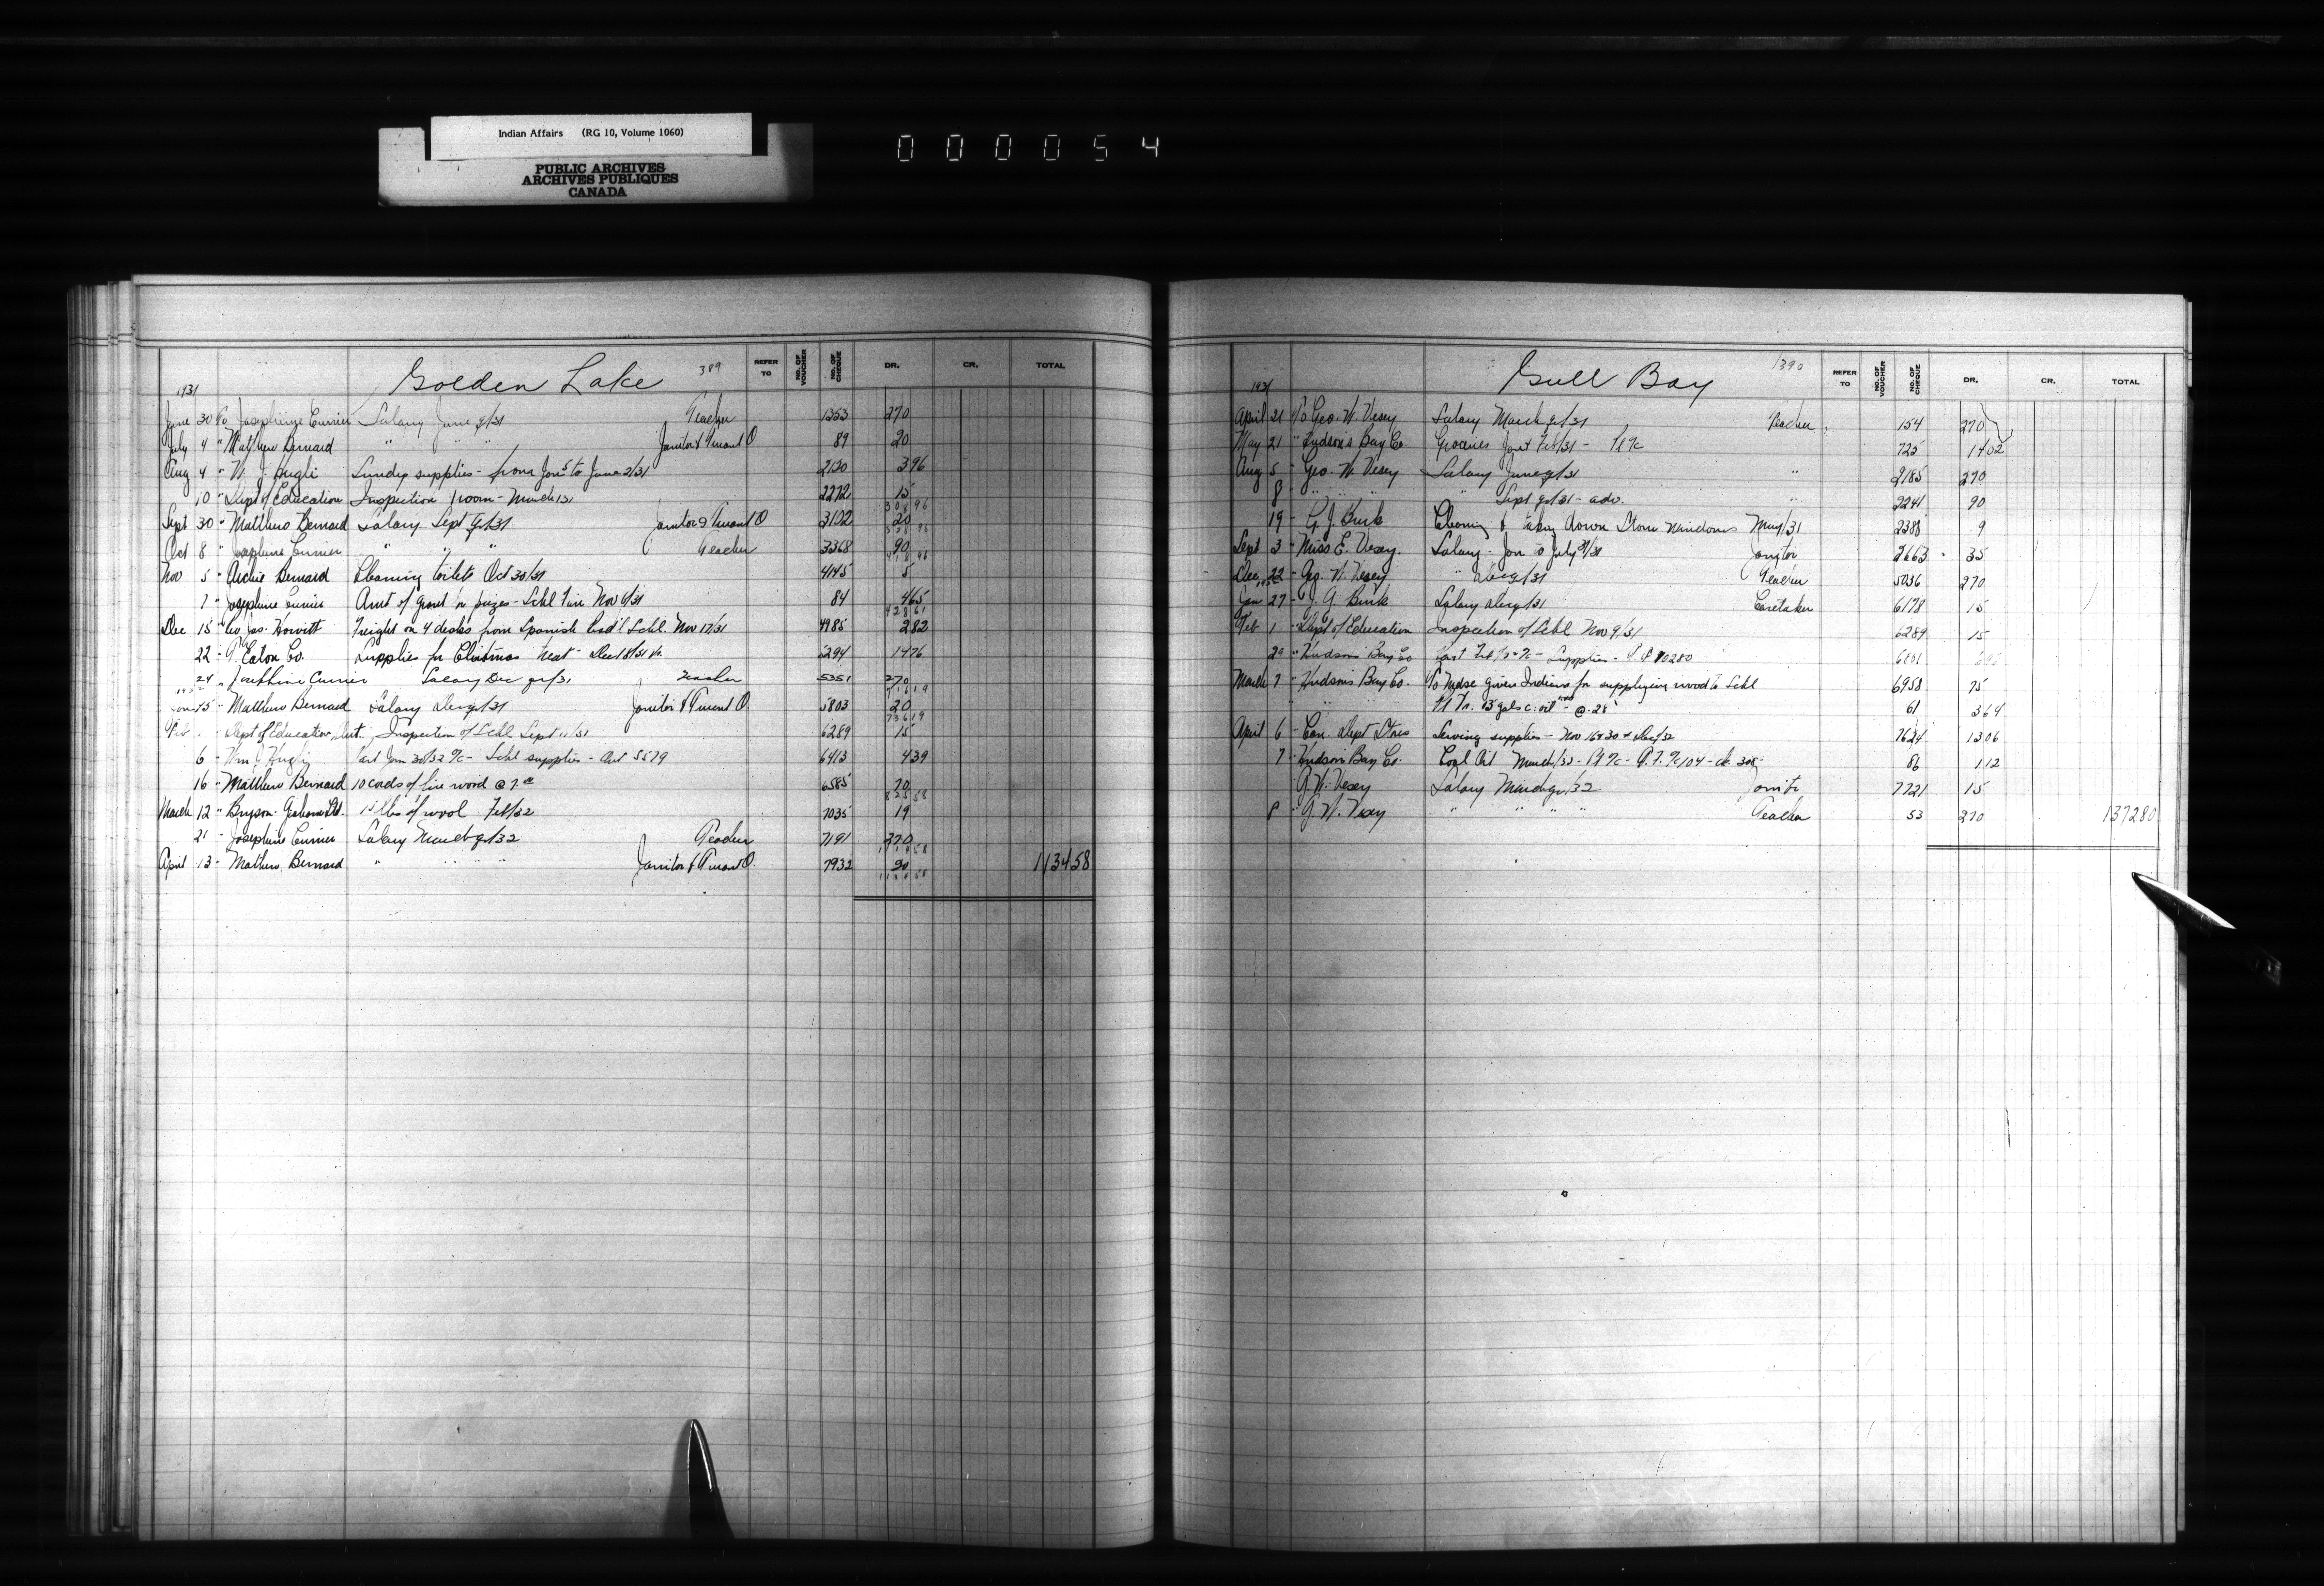 Indian Affairs (RG 10, Volume 1060)
PUBLIC ARCHIVES
ARCHIVES PUBLIQUES
CANADA
000054
Golden Lake 389
REFER TO NO. OF VOUCHER NO. OF CHEQUE DR. CR. TOTAL
1931
June 30 To Josephine Currier Salary June qr/31 Teacher 1353 270
July 4 " Matthew Bernard " " " Janitor & Truant O 89 20
Aug 4 " W. J. Hugli Sundry supplies - from Jan 5 to June 2/31 2130 396
10 " Dept of Education Inspection - March 31 2272 15
Sept 30 " Matthew Bernard Salary Sept qr/31 Janitor & Truant O 3102 20
Oct 8 " Josephine Currier " " " Teacher 3368 90
Nov 5 " Archie Bernard Cleaning toilets Oct 30/31 4145 5
7 " Josephine Currier Amt of grant for prizes - Schl Fair Nov 6/31 84 465
Dec 15 " Jas. Howitt Freight on 4 desks from Spanish Ind'l Schl. Nov 17/31 4985 282
22 " T. Eaton Co. Supplies for Christmas treat - Dec 18/31 5294 1476
24 " Josephine Currier Salary Dec qr/31 Teacher 5351 270
15 " Matthew Bernard Salary Dec qr/31 Janitor & Truant O. 5803 20
Feb 1 " Dept of Education, Ont. Inspection of Schl Sept 11/31 6289 15
6 " Wm J Hugli Jan 30/32 a/c - Schl supplies - 5579 6413 439
16 " Matthew Bernard 10 cords of fire wood @ 7.00 6585 70
March 12 " Bryson-Graham Ltd. 15 lbs of wool Feb/32 7035 19
21 " Josephine Currier Salary March qr/32 Teacher 7191 270
April 13 " Mathew Bernard " " " Janitor & Truant O. 7932 20 113458
Gull Bay 390
REFER TO NO. OF VOUCHER NO. OF CHEQUE DR. CR. TOTAL
1931
April 21 To Geo. W. Vesey Salary March qr/31 Teacher 154 270
May 21 " Hudson's Bay Co Groceries Jan & Feb/31 - 725 1402
Aug 5 " Geo. W. Vesey Salary June qr/31 " 2185 270
8 " " " " " Sept qr/31 - adv. " 2241 90
19 " G. J. Burk Cleaning & taking down Storm windows May/31 2388 9
Sept 3 " Miss E. Vesey. Salary - Jan to July 31/31 Janitor 2663 35
Dec 22 " Geo. W. Vesey " Dec qr/31 Teacher 5036 270
Jan 27 " J. G. Burk Salary Dec qr/31 Caretaker 6178 15
Feb 1 " Dept of Education Inspection of Schl Nov 9/31 6289 15
29 " Hudsons Bay Co Feb a/c - Supplies - 10280
March 7 " Hudsons Bay Co. To Mdse given Indians for supplying wood to Schl 6958 75
" " 13 gals c. oil @ .28 61 364
April 6 " Can. Dept Stores Sewing supplies - Nov 16 & 30 & Dec/32 7624 1306
7 " Hudson Bay Co. Coal Oil March/32 - 86 112
G. W. Vesey Salary March qr/32 Janitor 7721 15
8 " G. W. Vesey " " " " Teacher 53 270 137280